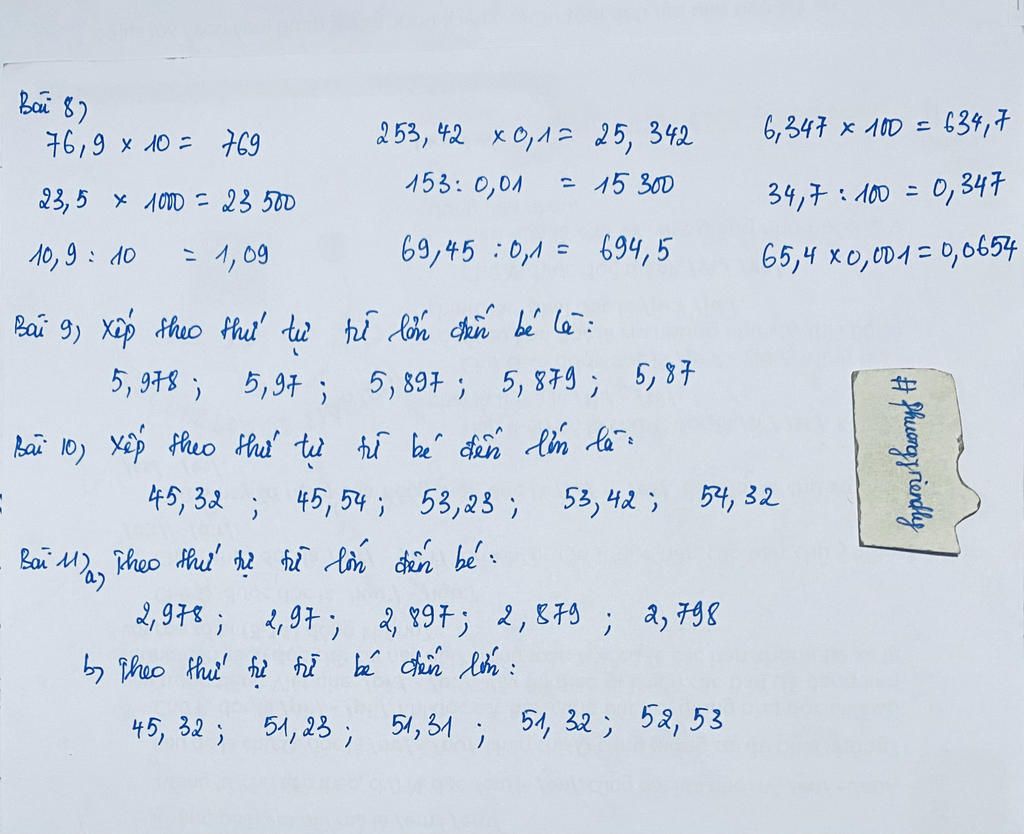 Bài 8)
76,9 × 10 = 769 253,42 × 0,1 = 25,342 6,347 × 100 = 634,7
23,5 × 1000 = 23 500 153 : 0,01 = 15 300 34,7 : 100 = 0,347
10,9 : 10 = 1,09 69,45 : 0,1 = 694,5 65,4 × 0,001 = 0,0654
Bài 9) Xếp theo thứ tự từ lớn đến bé là:
5,978 ; 5,97 ; 5,897 ; 5,879 ; 5,87
# phuongfriendly
Bài 10) Xếp theo thứ tự từ bé đến lớn là:
45,32 ; 45,54 ; 53,23 ; 53,42 ; 54,32
Bài 11) a) Theo thứ tự từ lớn đến bé :
2,978 ; 2,97 ; 2,897 ; 2,879 ; 2,798
b) Theo thứ tự từ bé đến lớn :
45,32 ; 51,23 ; 51,31 ; 51,32 ; 52,53